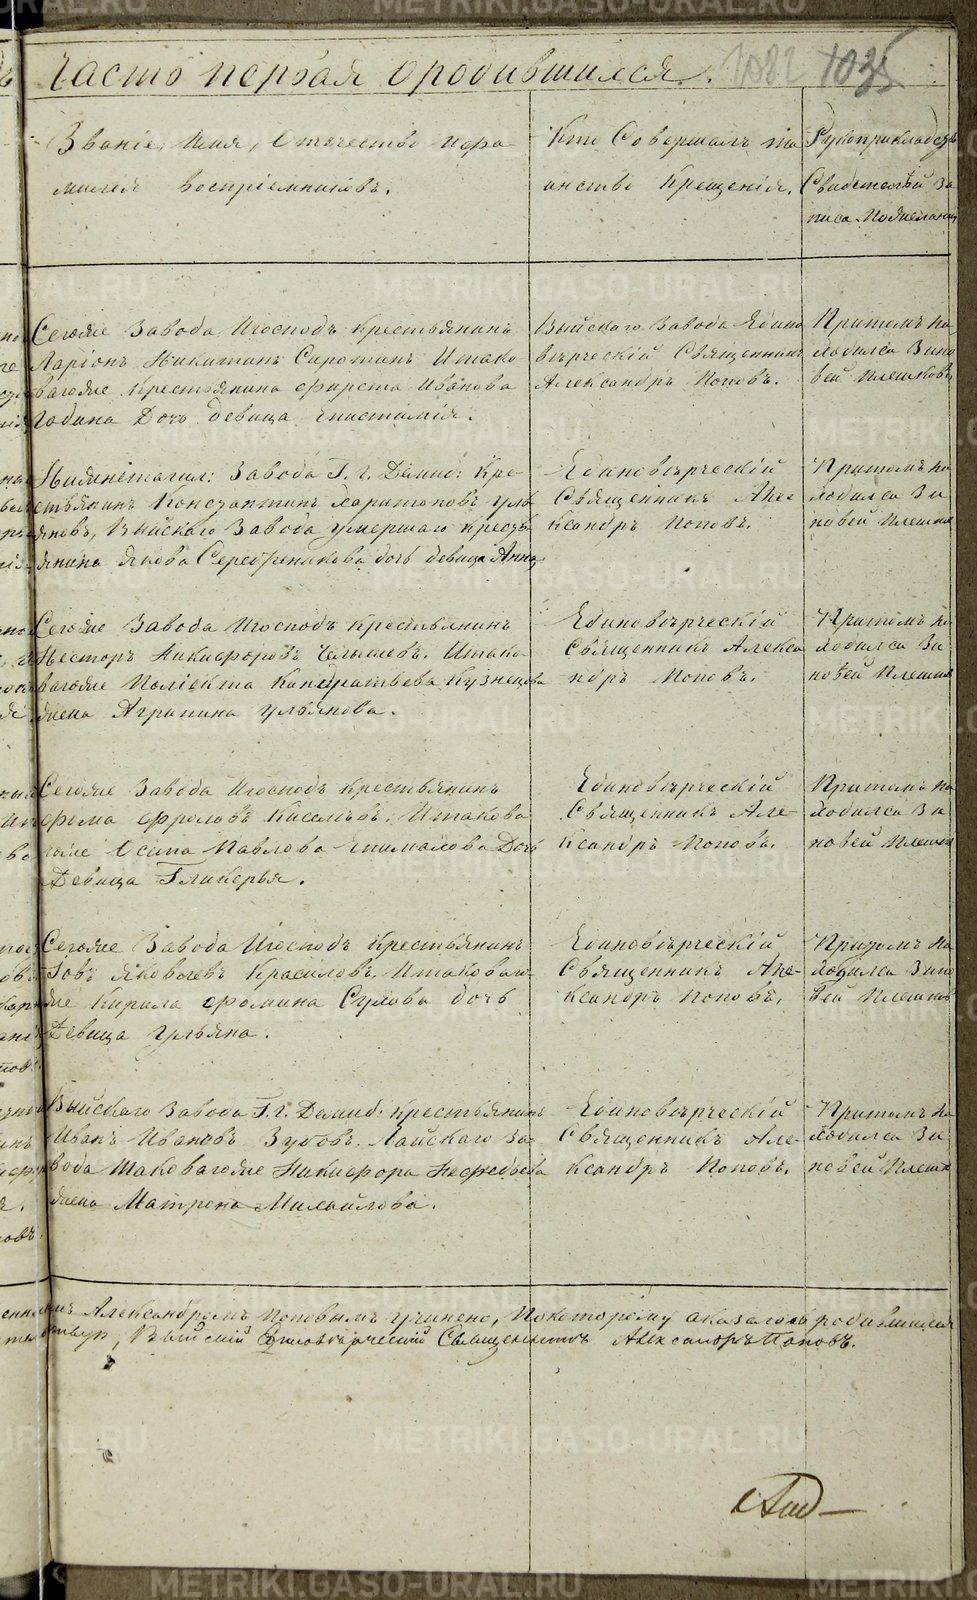 Часть первая о родившихся. 1082 1035
Званіе, Имя, Отечество и фа
милія воспріемниковъ.
Кто Совершалъ та
инство Крещенія.
Рукоприкладство
Свидетелей За
писа По желанію
Сегоже Завода Игосподъ Крестьянинъ
Ларіонъ Никитинъ Сиротинъ Итако
вагоже Крестьянина Фирста Иванова
Дочь девица
Выйскаго Завода Едино
верческій Священникъ
Александръ Поповъ.
Притомъ на
ходился Зино
вей Плешковъ
Нижнетагил: Завода Г. г. Демид: Кре
стьянинъ Константинъ Харитоновъ Уль
яновъ, Выйскаго Завода умершаго кресть
янина Якова Серебренникова дочь девица Анна
Единоверческій
Священникъ Але
ксандръ Поповъ.
Притомъ на
ходился Зи
новей Плешков
Сегоже Завода Игосподъ Крестьянинъ
Несторъ Никифоровъ Итако
вагоже Поліекта Кузнецова
жена Агрипина Ульянова.
Единоверческій
Священникъ Алекса
ндръ Поповъ.
Притомъ на
ходился Зи
новей Плешков
Сегоже Завода Игосподъ Крестьянинъ
Ефима Фроловъ Киселевъ. Итакова
гоже Осипа Павлова Дочь
Девица Гликерья.
Единоверческій
Священникъ Але
ксандръ Поповъ.
Притомъ на
ходился Зи
новей Плешков
Сегоже Завода Игосподъ Крестьянинъ
Яковлевъ Красиловъ. Итаковаго
же Кирила Фомина Сулова дочь
Девица Ульяна.
Единоверческій
Священникъ Але
ксандръ Поповъ.
Притомъ на
ходился Зино
вей Плешков
Выйскаго Завода Г. г. Демид: крестьянинъ
Иванъ Ивановъ Зубовъ. Лайскаго За
вода Таковагоже Никифора Нефедьева
жена Матрена Михайлова.
Единоверческій
Священникъ Але
ксандръ Поповъ.
Притомъ на
ходился Зи
новей Плешк
Александромъ Поповымъ учинено, Покоторому оказалось родившихся
Выйский Единоверческий Священникъ Александръ Поповъ.
METRIKI.GASO-URAL.RU